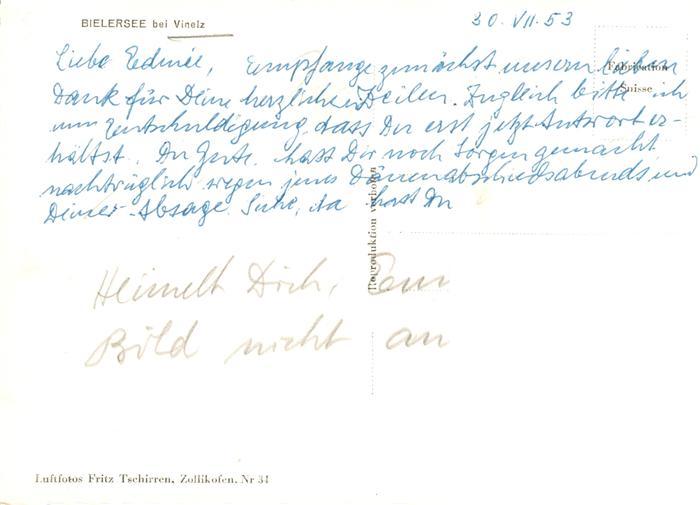 BIELERSEE bei Vinelz
30. VII. 53
Liebe Edmée, Empfange zunächst unsern lieben
Dank für Deine herzlichen Zeilen. Zugleich bitte ich
um Entschuldigung, dass Du erst jetzt Antwort er-
hältst. Du Gute, hast Dir noch Sorgen gemacht
nachträglich wegen jenes abends und
Deiner Absage. Siehe, da hast Du
Fabrication
Suisse
Reproduktion verboten
Heimelt Dich, 
Bild nicht an
Luftfotos Fritz Tschirren, Zollikofen, Nr 34